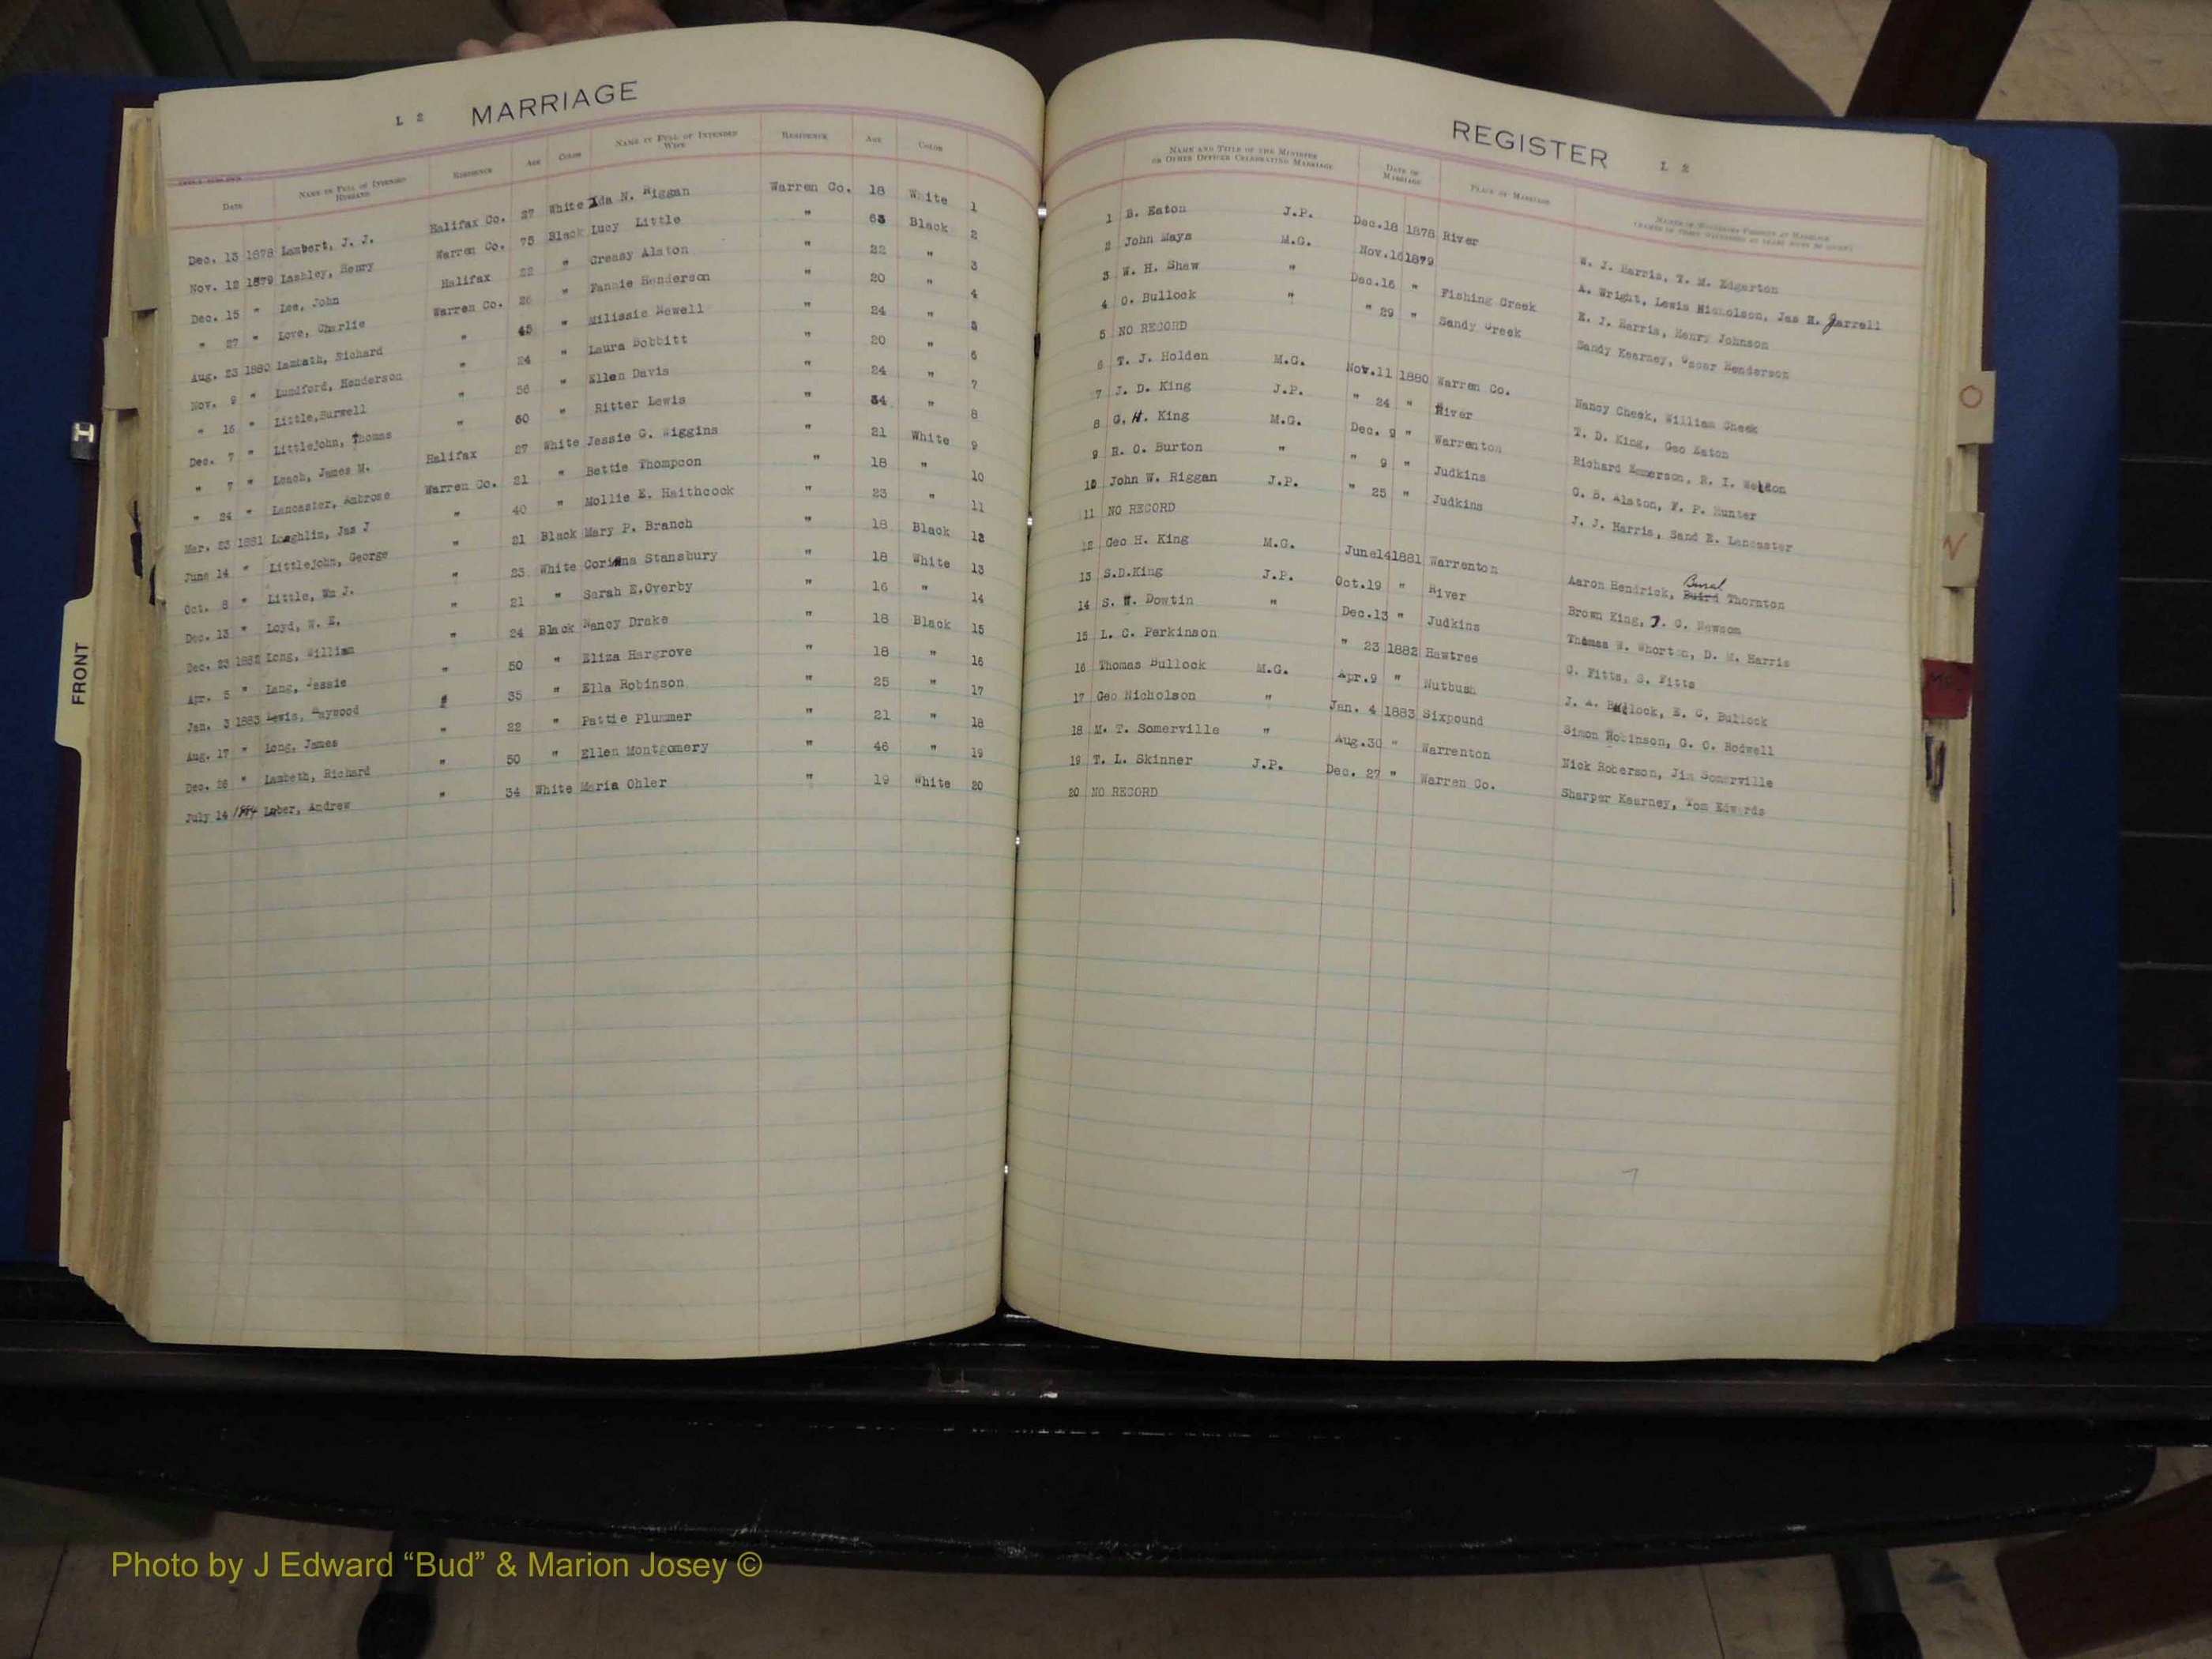 L 2 MARRIAGE
DATE NAME IN FULL OF INTENDED HUSBAND RESIDENCE AGE COLOR NAME IN FULL OF INTENDED WIFE RESIDENCE AGE COLOR
Dec. 13 1878 Lambert, J. J. Halifax Co. 27 White Ida N. Riggan Warren Co. 18 White 1
Nov. 12 1879 Lashley, Henry Warren Co. 75 Black Lucy Little " 63 Black 2
Dec. 15 " Lee, John Halifax 22 " Creasy Alston " 22 " 3
" 27 " Love, Charlie Warren Co. 26 " Fannie Henderson " 20 " 4
Aug. 23 1880 Lambath, Richard " 45 " Milissie Newell " 24 " 5
Nov. 9 " Lundford, Henderson " 24 " Laura Bobbitt " 20 " 6
" 15 " Little, Burwell " 56 " Ellen Davis " 24 " 7
Dec. 7 " Littlejohn, Thomas " 60 " Ritter Lewis " 34 " 8
" 7 " Leach, James M. Halifax 27 White Jessie G. Wiggins " 21 White 9
" 24 " Lancaster, Ambrose Warren Co. 21 " Bettie Thompson " 18 " 10
Mar. 23 1881 Loughlin, Jas J " 40 " Mollie E. Haithcock " 23 " 11
June 14 " Littlejohn, George " 21 Black Mary P. Branch " 18 Black 12
Oct. 8 " Little, Wm J. " 23 White Corinna Stansbury " 18 White 13
Dec. 13 " Loyd, W. E. " 21 " Sarah E. Overby " 16 " 14
Dec. 23 1882 Long, William " 24 Black Nancy Drake " 18 Black 15
Apr. 5 " Lang, Jessie " 50 " Eliza Hargrove " 18 " 16
Jan. 3 1883 Lewis, Haywood " 35 " Ella Robinson " 25 " 17
Aug. 17 " Long, James " 22 " Pattie Plummer " 21 " 18
Dec. 26 " Lambeth, Richard " 50 " Ellen Montgomery " 46 " 19
July 14 1884 Lober, Andrew " 34 White Maria Ohler " 19 White 20
REGISTER L 2
NAME AND TITLE OF THE MINISTER OR OTHER OFFICER CELEBRATING MARRIAGE DATE OF MARRIAGE PLACE OF MARRIAGE
1 B. Eaton J.P. Dec.18 1878 River W. J. Harris, T. M. Edgerton
2 John Mays M.G. Nov.16 1879 A. Wright, Lewis Nicholson, Jas H. Jarrell
3 W. H. Shaw " Dec.16 " Fishing Creek E. J. Harris, Henry Johnson
4 O. Bullock " " 29 " Sandy Creek Sandy Kearney, Oscar Henderson
5 NO RECORD
6 T. J. Holden M.G. Nov.11 1880 Warren Co. Nancy Cheek, William Cheek
7 J. D. King J.P. " 24 " River T. D. King, Geo Eaton
8 G. H. King M.G. Dec. 9 " Warrenton Richard Emmerson, R. I. Weldon
9 R. O. Burton " " 9 " Judkins G. B. Alston, F. P. Hunter
10 John W. Riggan J.P. " 25 " Judkins J. J. Harris, Sand E. Lancaster
11 NO RECORD
12 Geo H. King M.G. June14 1881 Warrenton Aaron Hendrick, Baird Thornton
13 S.D.King J.P. Oct.19 " River Brown King, J. G. Newsom
14 S. W. Dowtin " Dec.13 " Judkins Thomas W. Whorton, D. M. Harris
15 L. C. Perkinson " 23 1882 Hawtree G. Fitts, S. Fitts
16 Thomas Bullock M.G. Apr.9 " Nutbush J. A. Bullock, E. C. Bullock
17 Geo Nicholson " Jan. 4 1883 Sixpound Simon Robinson, G. O. Rodwell
18 M. T. Somerville " Aug.30 " Warrenton Nick Roberson, Jim Somerville
19 T. L. Skinner J.P. Dec. 27 " Warren Co. Sharper Kearney, Tom Edwards
20 NO RECORD
FRONT
H
O
N
Photo by J Edward “Bud” & Marion Josey ©